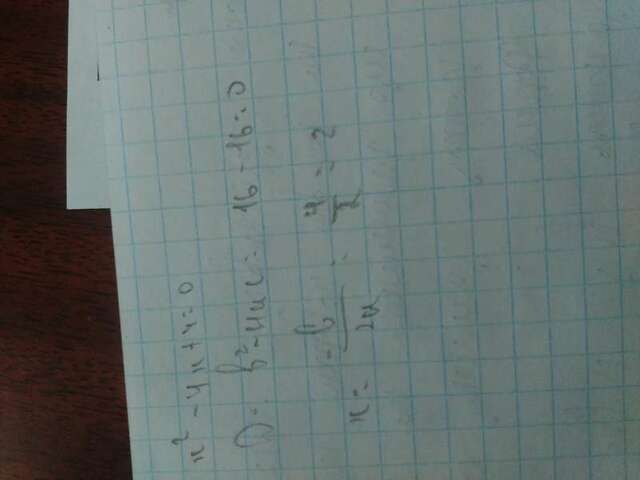 x² - 4x + 4 = 0
D = b² - 4ac = 16 - 16 = 0
x = -b/2a = 4/2 = 2